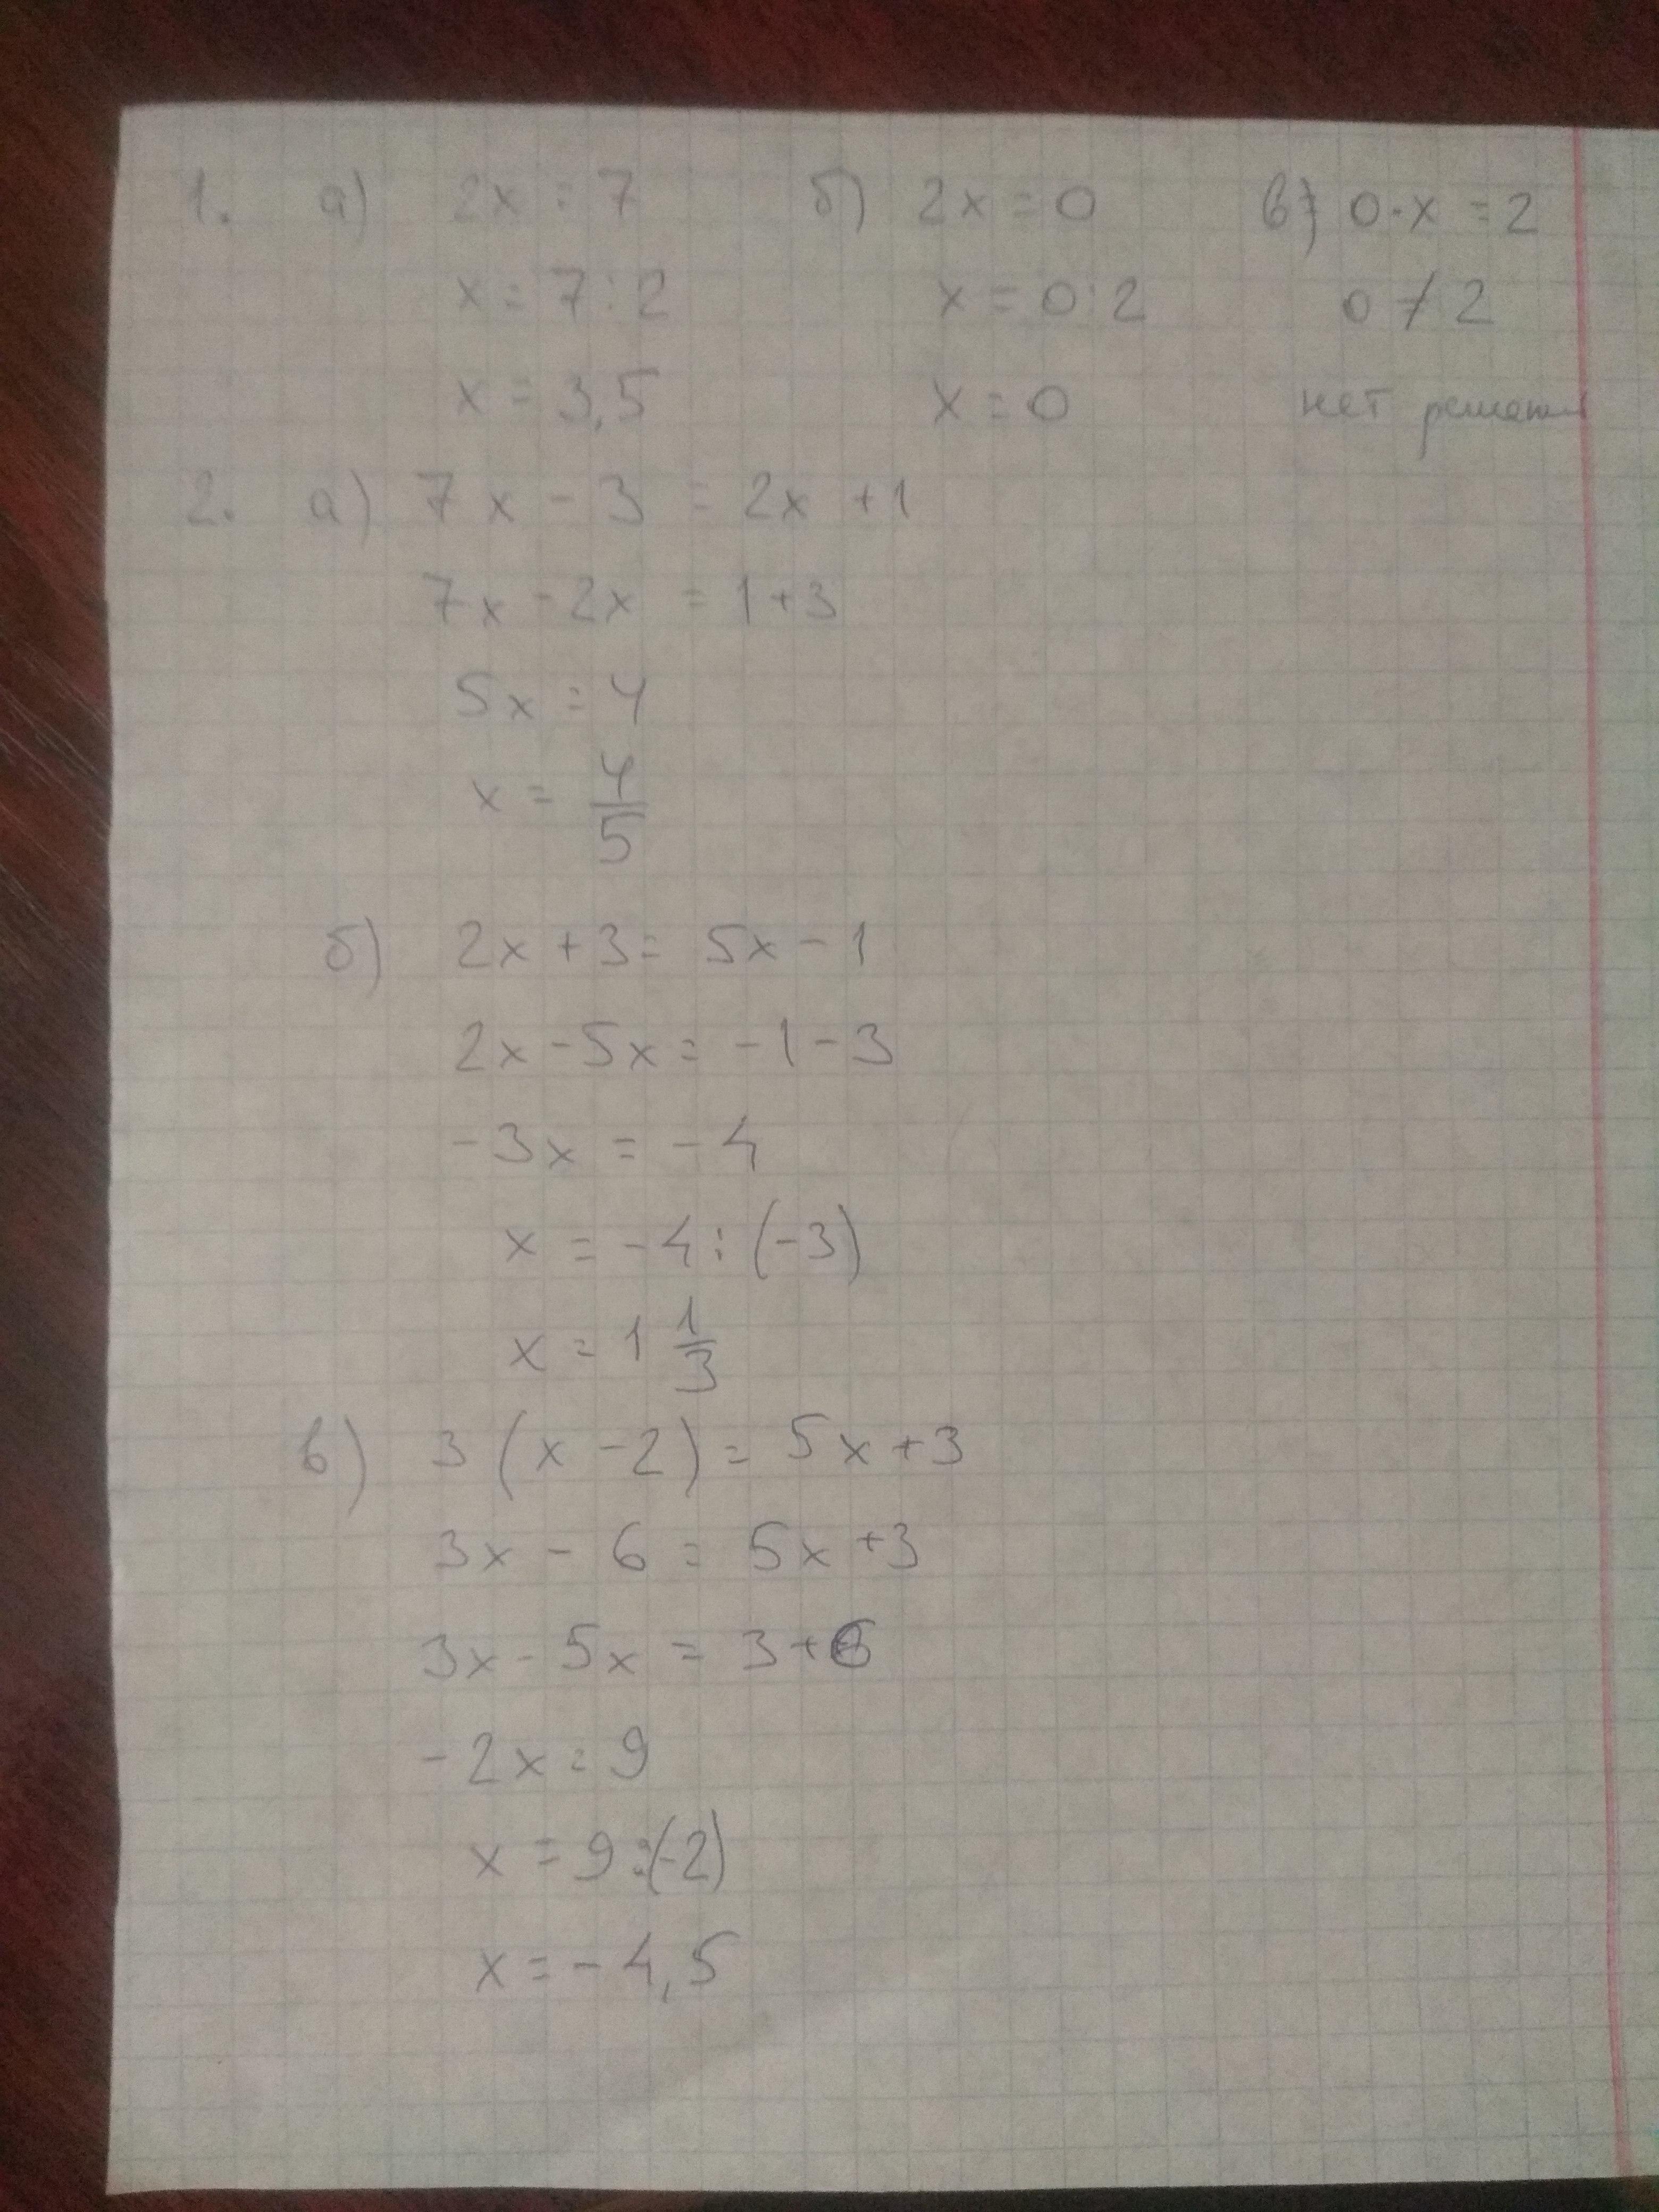 1. а) 2x = 7 б) 2x = 0 в) 0·x = 2
x = 7:2 x = 0:2 0 ≠ 2
x = 3,5 x = 0 нет решения
2. а) 7x - 3 = 2x + 1
7x - 2x = 1+3
5x = 4
x = 4/5
б) 2x + 3 = 5x - 1
2x - 5x = -1 - 3
-3x = -4
x = -4 : (-3)
x = 1 1/3
в) 3 (x - 2) = 5x + 3
3x - 6 = 5x + 3
3x - 5x = 3 + 6
-2x = 9
x = 9 : (-2)
x = -4,5